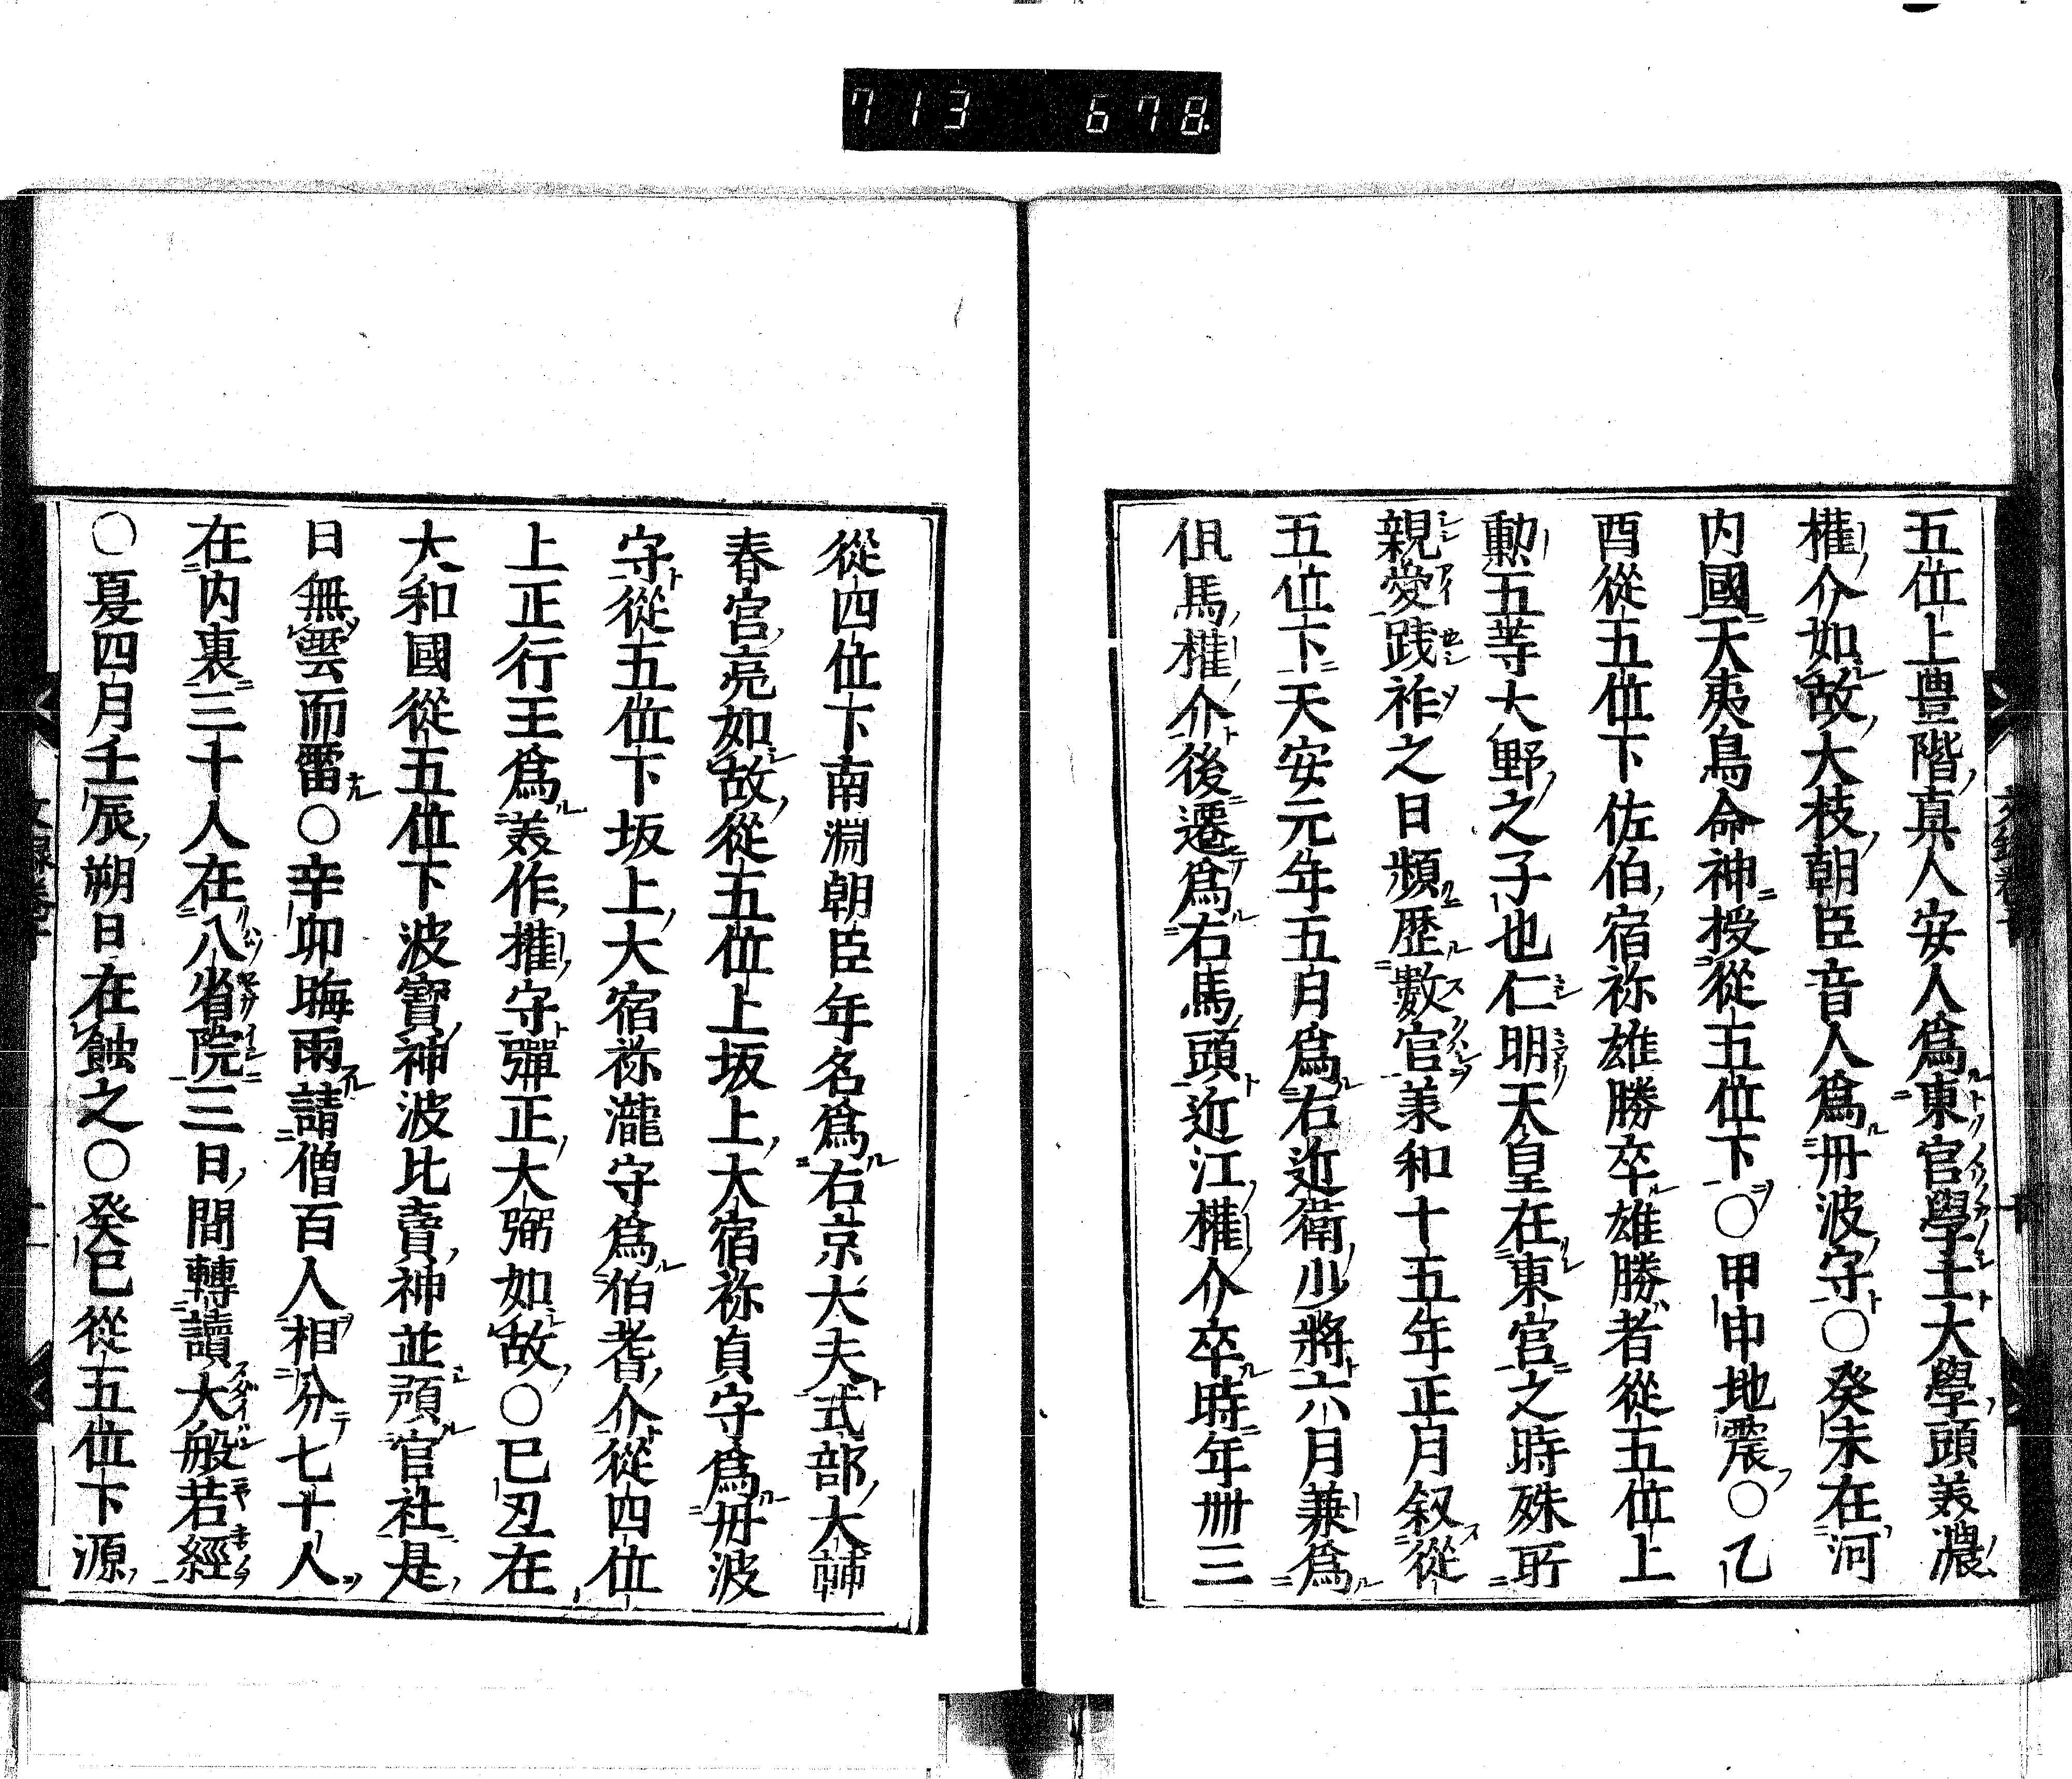 713 678
五位上豊階真人安人爲東宮學士大學頭美濃
權介如故大枝朝臣音人爲丹波守○癸未在河
内國天夷鳥命神授從五位下○甲申地震○乙
酉從五位下佐伯宿祢雄勝卒雄勝者從五位上
勳五等大野之子也仁明天皇在東宮之時殊所
親愛践祚之日頻歴數官兼和十五年正月叙從
五位下天安元年五月爲右近衛少將六月兼爲
但馬權介後遷爲右馬頭近江權介卒時年卌三
從四位下南淵朝臣年名爲右京大夫式部大輔
春宮亮如故從五位上坂上大宿祢貞守爲丹波
守從五位下坂上大宿祢瀧守爲伯耆介從四位
上正行王爲美作權守彈正大弼如故○己丑在
大和國從五位下波寶神波比賣神並預官社是
日無雲而雷○辛卯晦雨請僧百人相分七十人
在内裏三十人在八省院三日間轉讀大般若經
○夏四月壬辰朔日在蝕之○癸巳從五位下源